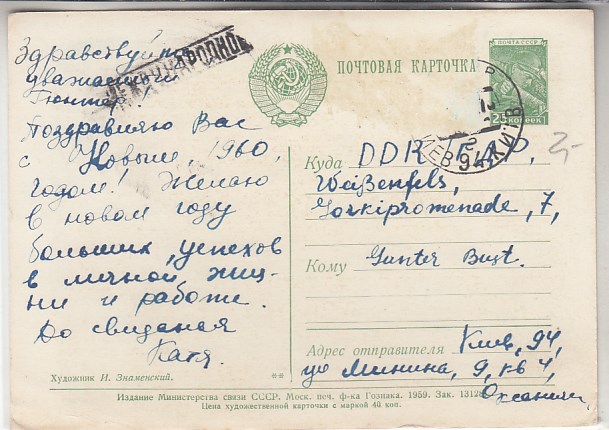 Здравствуйте
уважаемый
Гюнтер!
Поздравляю Вас
с Новым, 1960,
годом! Желаю
в новом году
больших успехов
в личной жиз-
ни и работе.
До свиданя
Катя.
Художник И. Знаменский.
МЕЖДУНАРОДНОЕ
ПОЧТОВАЯ КАРТОЧКА
ПОЧТА СССР
25 КОПЕЕК
КИЕВ
2,-
Куда DDR
Weißenfels,
Gorkipromenade, 7,
Кому Gunter Bust.
Адрес отправителя Киев, 94,
ул Минина, 9, кв 4,
**
Издание Министерства связи СССР. Моск. печ. ф-ка Гознака. 1959. Зак. 13128
Цена художественной карточки с маркой 40 коп.